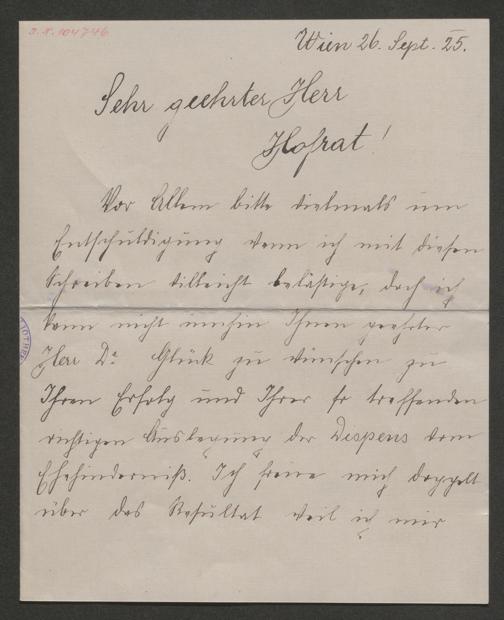 J.N. 104746
Wien 26. Sept. 25.
Sehr geehrter Herr
Hofrat!
Vor Allem bitte vielmals um
Entschuldigung wenn ich mit diesen
Schreiben villeicht belästige, doch ich
kann nicht umhin Ihnen geehrter
Herr Dr Glück zu wünschen zu
Ihren Erfolg und Ihrer so treffenden
richtigen Auslegung der Dispens vom
Ehehinderniß. Ich freue mich doppelt
über das Resultat weil ich mir